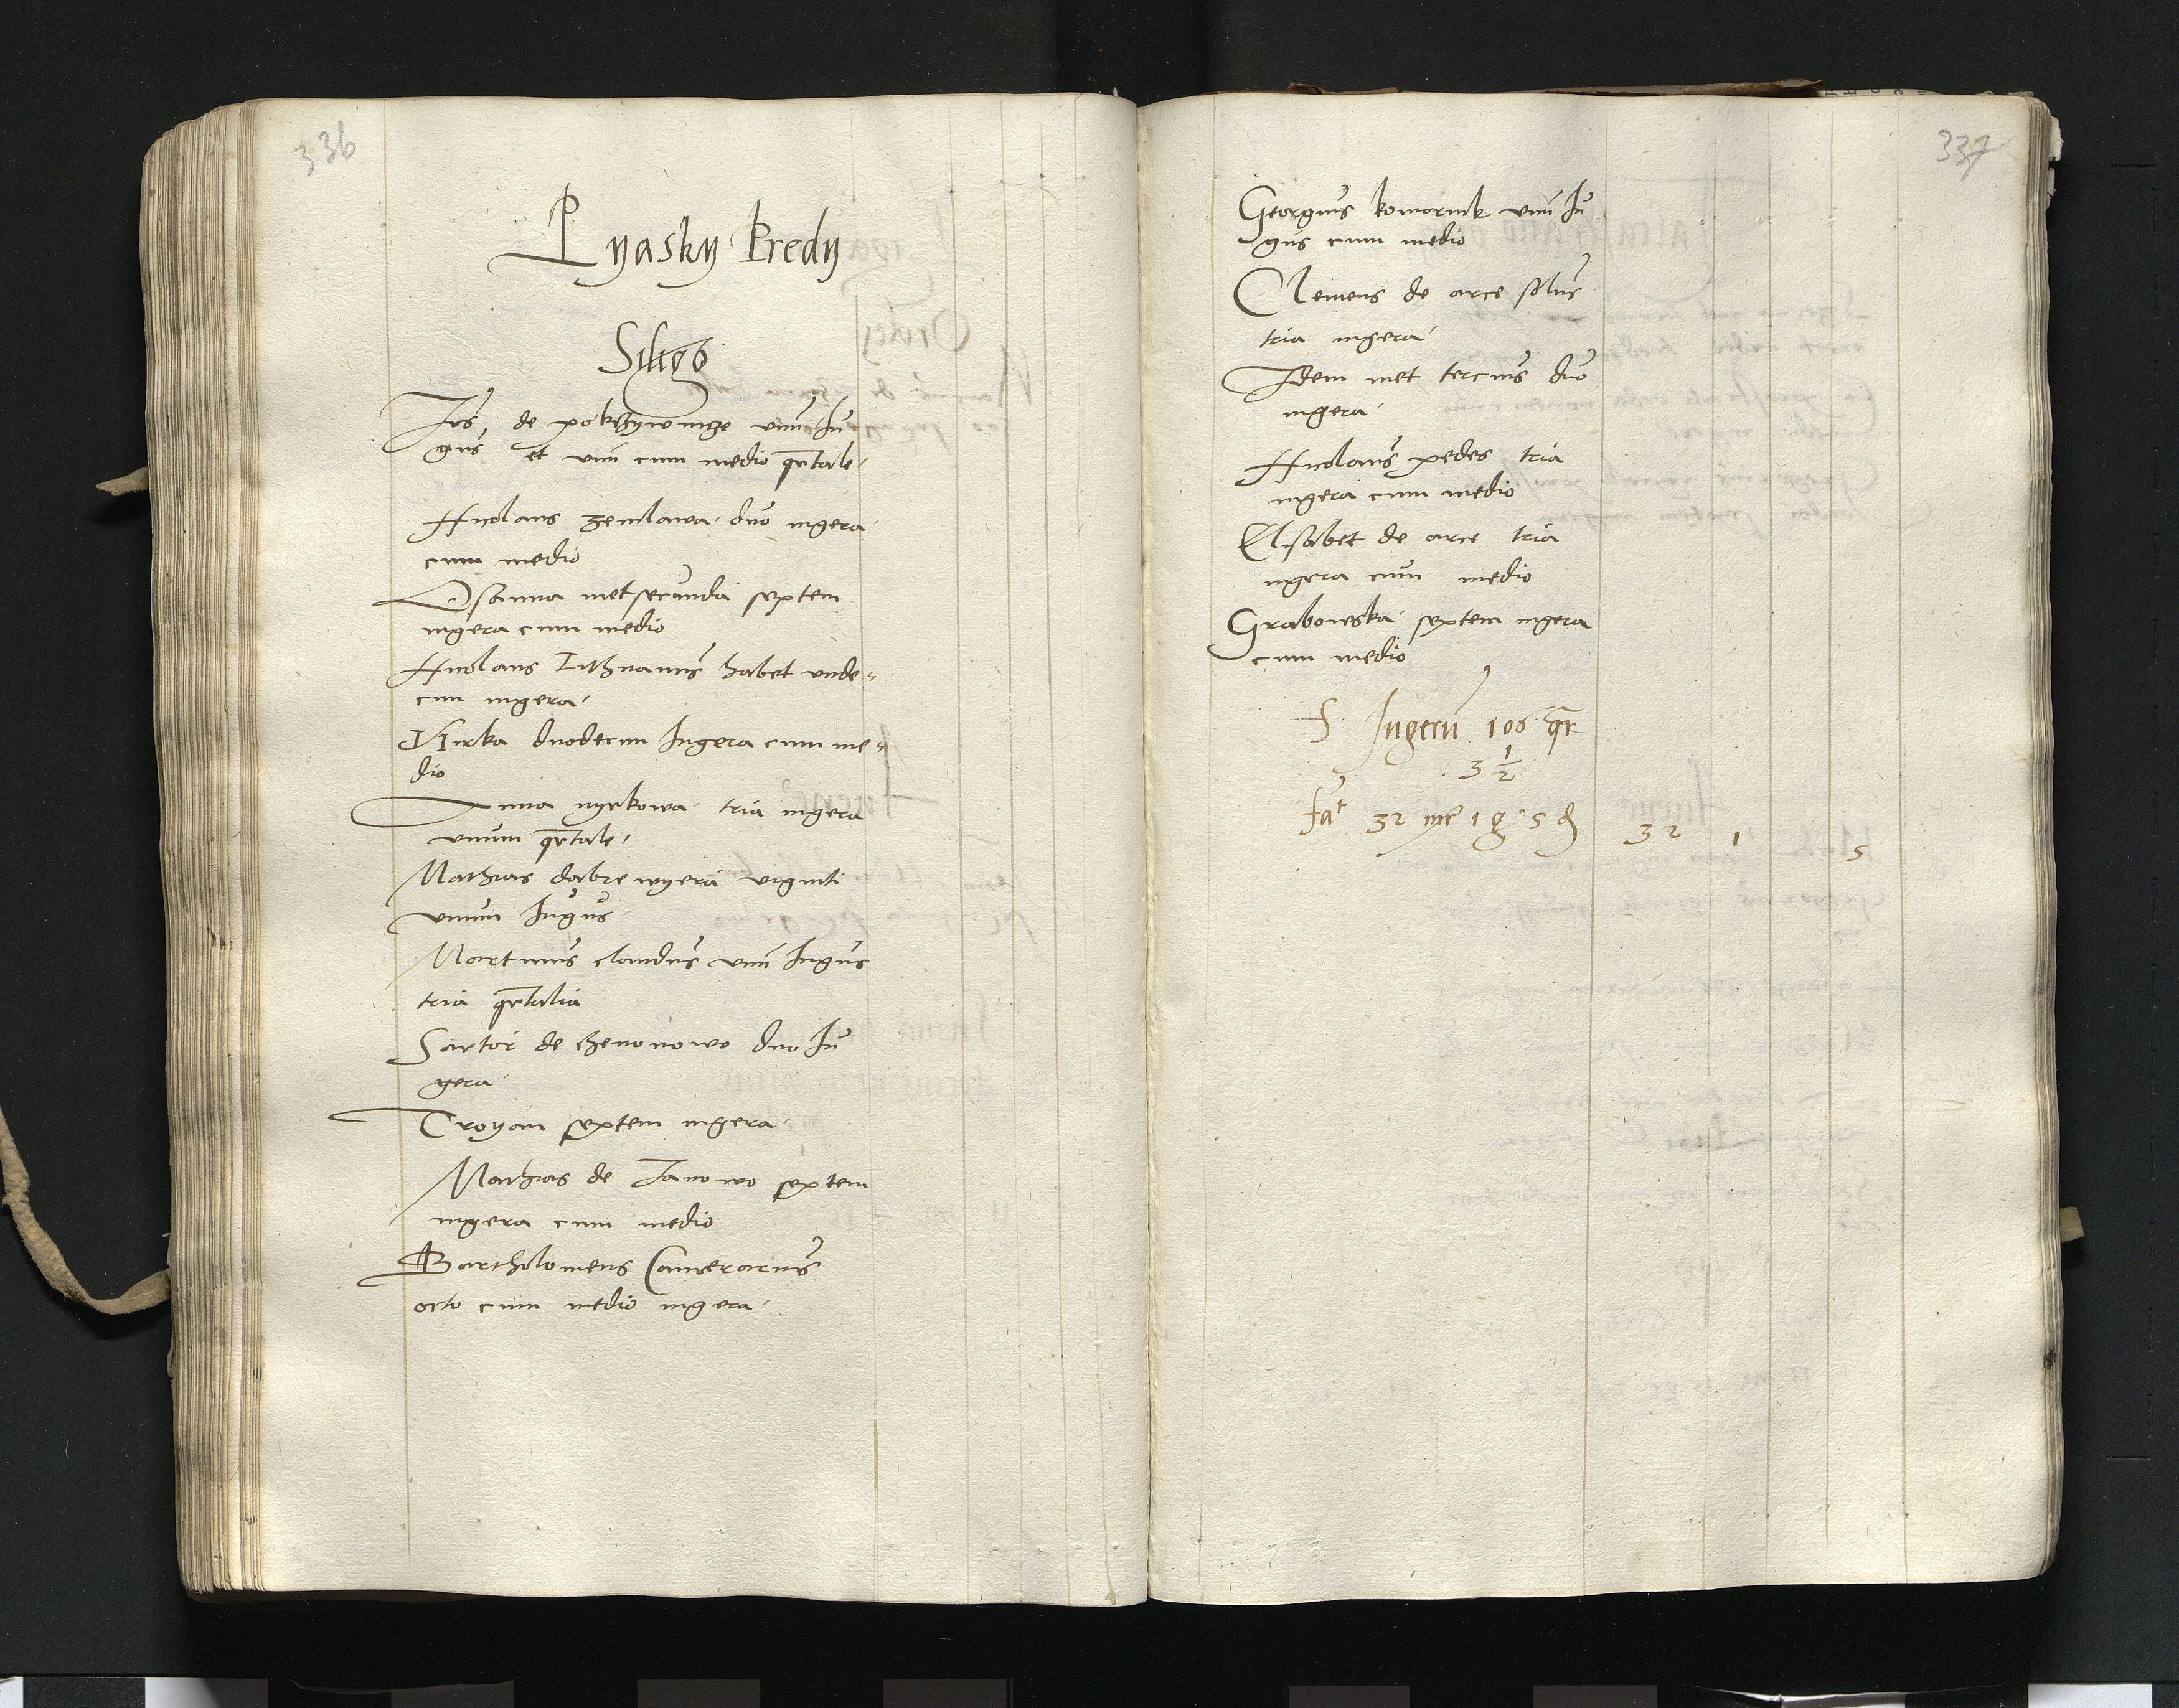 336
Pyasky Predy
Siligo
Jos. de pokrzywnize unu Ju
gus et unu cum medio qrtale
Nicolaus zemlawa duo iugera
cum medio
Osanna metsecunda septem
iugera cum medio
Nicolaus Lithuanus habet unde=
cim iugera
Mirka duodecim Iugera cum me=
dio
Anna nyrkowa tria iugera
unum qrtale
Mathias dobre wyera viginti
unum Iugus
Martinus claudus unu Iugus
tria qrtalia
Sartor de Thenonowo duo Iu
gera
Troyan septem iugera
Mathias de Janowo septem
iugera cum medio
Bartholomeus Camerarius
octo cum medio iugera
337
Georgius komornik unu Iu
gus cum medio
Clemens de arce solus
tria iugera
Idem met tercius duo
iugera
Nicolaus pedes tria
iugera cum medio
Elisabet de arce tria
iugera cum medio
Grabowska septem iugera
cum medio
S Iugeru 106 qr
3 1/2
fat 32 mr 1 g 5 d 32 1 5